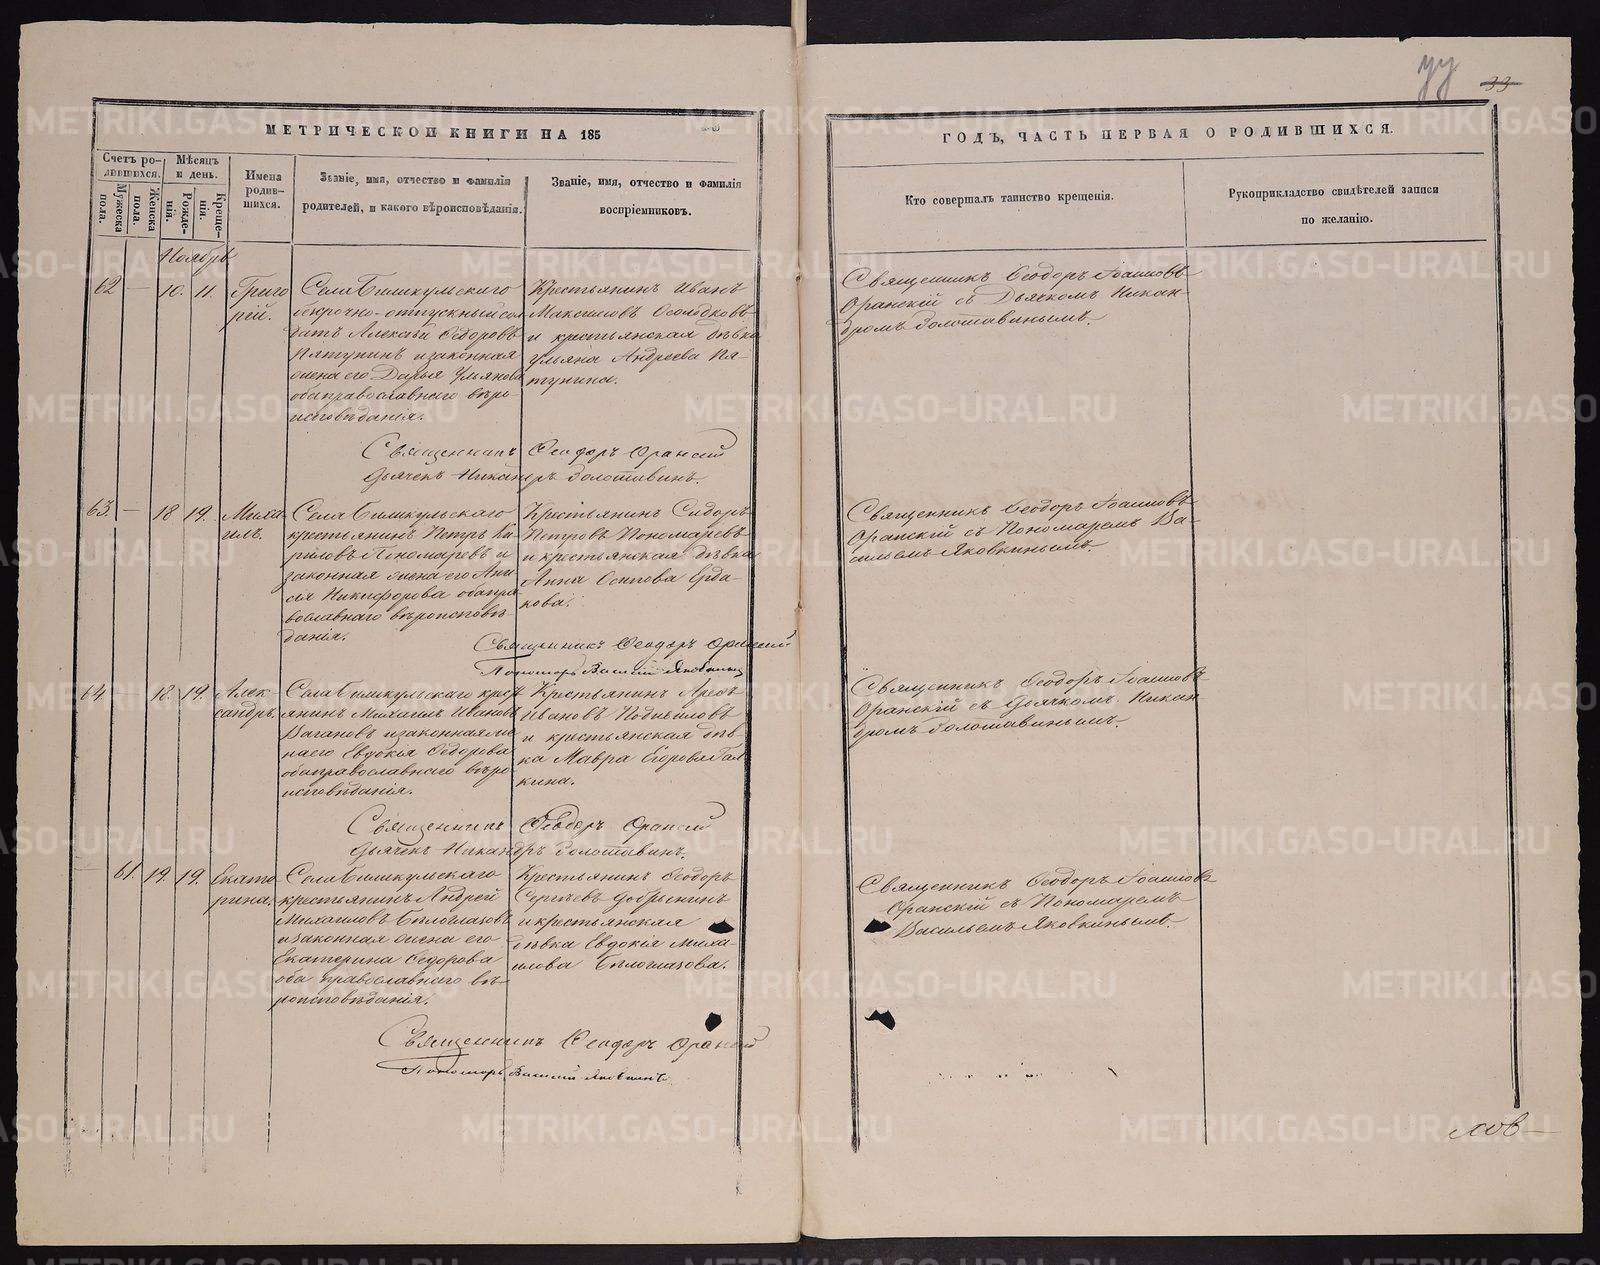 33
МЕТРИЧЕСКОЙ КНИГИ НА 185
ГОДЪ, ЧАСТЬ ПЕРВАЯ О РОДИВШИХСЯ.
Счетъ ро-
дившихся.
Мужеска
пола.
Женска
пола.
Мѣсяцъ
и день.
Рожде-
нія.
Креще-
нія.
Имена
родив-
шихся.
Званіе, имя, отчество и фамилія
родителей, и какого вѣроисповѣданія.
Званіе, имя, отчество и фамилія
воспріемниковъ.
Кто совершалъ таинство крещенія.
Рукоприкладство свидѣтелей записи
по желанію.
Ноябрь
62 — 10. 11.
Григо
рій.
Села
безсрочно-отпускный сол
датъ Алексѣй Ѳедоровъ
Пятунинъ и законная
жена его Дарья Ульянова
оба православнаго вѣро
исповѣданія.
Крестьянинъ Иванъ
Максимовъ
и крестьянская дѣвка
Ульяна Андреева Пя-
тунина.
Священникъ Ѳеодоръ Іоанновъ
Оранскій съ Дьячкомъ Никан-
дромъ Золотавинымъ.
Священникъ Ѳеодоръ Оранскій
Дьячекъ Никандръ Золотавинъ.
63. — 18 19.
Миха-
илъ.
Села
крестьянинъ Петръ Ки
риловъ Пономаревъ и
законная жена его Ани
сія Никифорова оба пра
вославнаго вѣроисповѣ
данія.
Крестьянинъ Сидоръ
Петровъ Пономаревъ
и крестьянская дѣвка
Анна Осипова Ерда-
кова.
Священникъ Ѳеодоръ Іоанновъ
Оранскій съ Пономаремъ Ва-
сильемъ Яковкинымъ.
Священникъ Ѳеодоръ Оранскій
Пономарь Василій Яковкинъ
64 — 18. 19.
Алек-
сандръ.
Села крест
янинъ Михаилъ Ивановъ
Вагановъ и законная же
на его Евдокія Ѳедорова
оба православнаго вѣро
исповѣданія.
Крестьянинъ
Ивановъ
и крестьянская дѣв-
ка Мавра Егорова Гал
кина.
Священникъ Ѳеодоръ Іоанновъ
Оранскій съ Дьячкомъ Никан
дромъ Золотавинымъ.
Священникъ Ѳеодоръ Оранскій
Дьячекъ Никандръ Золотавинъ.
— 61. 19. 19.
Екате-
рина.
Села
крестьянинъ Андрей
Михаиловъ Бѣлоглазовъ
и законная жена его
Екатерина Ѳедорова
оба православнаго вѣ-
роисповѣданія.
Крестьянинъ Ѳеодоръ
Сергѣевъ Добрынинъ
и крестьянская
дѣвка Евдокія Миха-
илова Бѣлоглазова.
Священникъ Ѳеодоръ Іоанновъ
Оранскій съ Пономаремъ
Васильемъ Яковкинымъ.
Священникъ Ѳеодоръ Оранскій
Пономарь Василій Яковкинъ.
METRIKI.GASO-URAL.RU